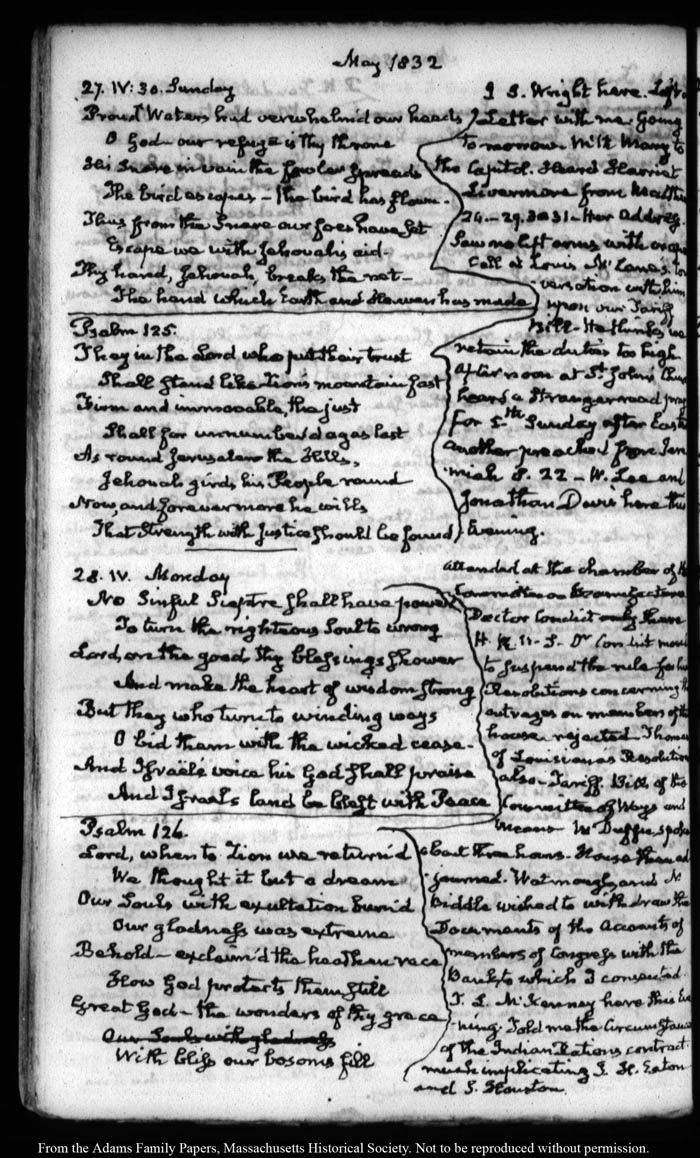 May 1832
27. IV: 30. Sunday
Proud Waters had overwhelm'd our heads
O God – our refuge is thy throne
His Snare in vain the fowler spreads
The bird escapes – the bird has flown.
Thus from the Snare our foes have set
Escape we with Jehovah's aid –
Thy hand, Jehovah, breaks the net –
The hand which Earth and Heaven has made
Psalm 125.
They in the Lord who put their trust
Shall stand like Zion's mountain fast
Firm and immovable, the just
Shall for unnumber'd ages last
As round Jerusalem the Hills,
Jehovah girds his People round
Now, and forevermore he wills
That Strength with Justice should be found
28. IV. Monday
No Sinful Sceptre shall have power
To turn the righteous Soul to wrong
Lord, on the good, thy blessings shower
And make the heart of wisdom strong
But they who turn to winding ways
O bid them with the wicked cease –
And Israel's voice his God shall praise
And Israel's land be blest with Peace
Psalm 126.
Lord, when to Zion we return'd
We thought it but a dream
Our Souls with exultation burn'd
Our gladness was extreme
Behold – exclaim'd the heathen race
How God protects them still
Great God – the wonders of thy grace
Our Souls with gladness
With bliss our bosoms fill
S. Wright here. Left
Letter with me. Going
to morrow. With Mary to
the Capitol. Heard Harriet
Livermore from
24.–29.30.31– Her address.
Saw no left arms with
Call at Louis McLane's.
versation with him
upon our Tariff
Bill – He thinks we
retain the duties too high
Afternoon at St. John's
heard a Stranger read
for 5th Sunday after
another preached from
miah 8. 22 – W. Lee and
Jonathan Davis here this
Evening.
Attended at the chamber of the
Committee on Manufactures
Doctor Condict only there
H. R. U. S. Dr Condict
to suspend the rule for his
Resolutions concerning the
outrages on members of the
house rejected. Thomas
of Louisiana's Resolution
also – Tariff. Bill of the
Committee of Ways and
Means McDuffie spoke
about three hours. House then ad
journed. Watmough, and N.
Biddle wished to withdraw the
Documents of the Accounts of
members of Congress with the
Bank, to which I consented.
T. L. McKenney here this Eve
ning. Told me the Circumstances
of the Indian Rations contract
much implicating J. H. Eaton
and S. Houston.
From the Adams Family Papers, Massachusetts Historical Society. Not to be reproduced without permission.